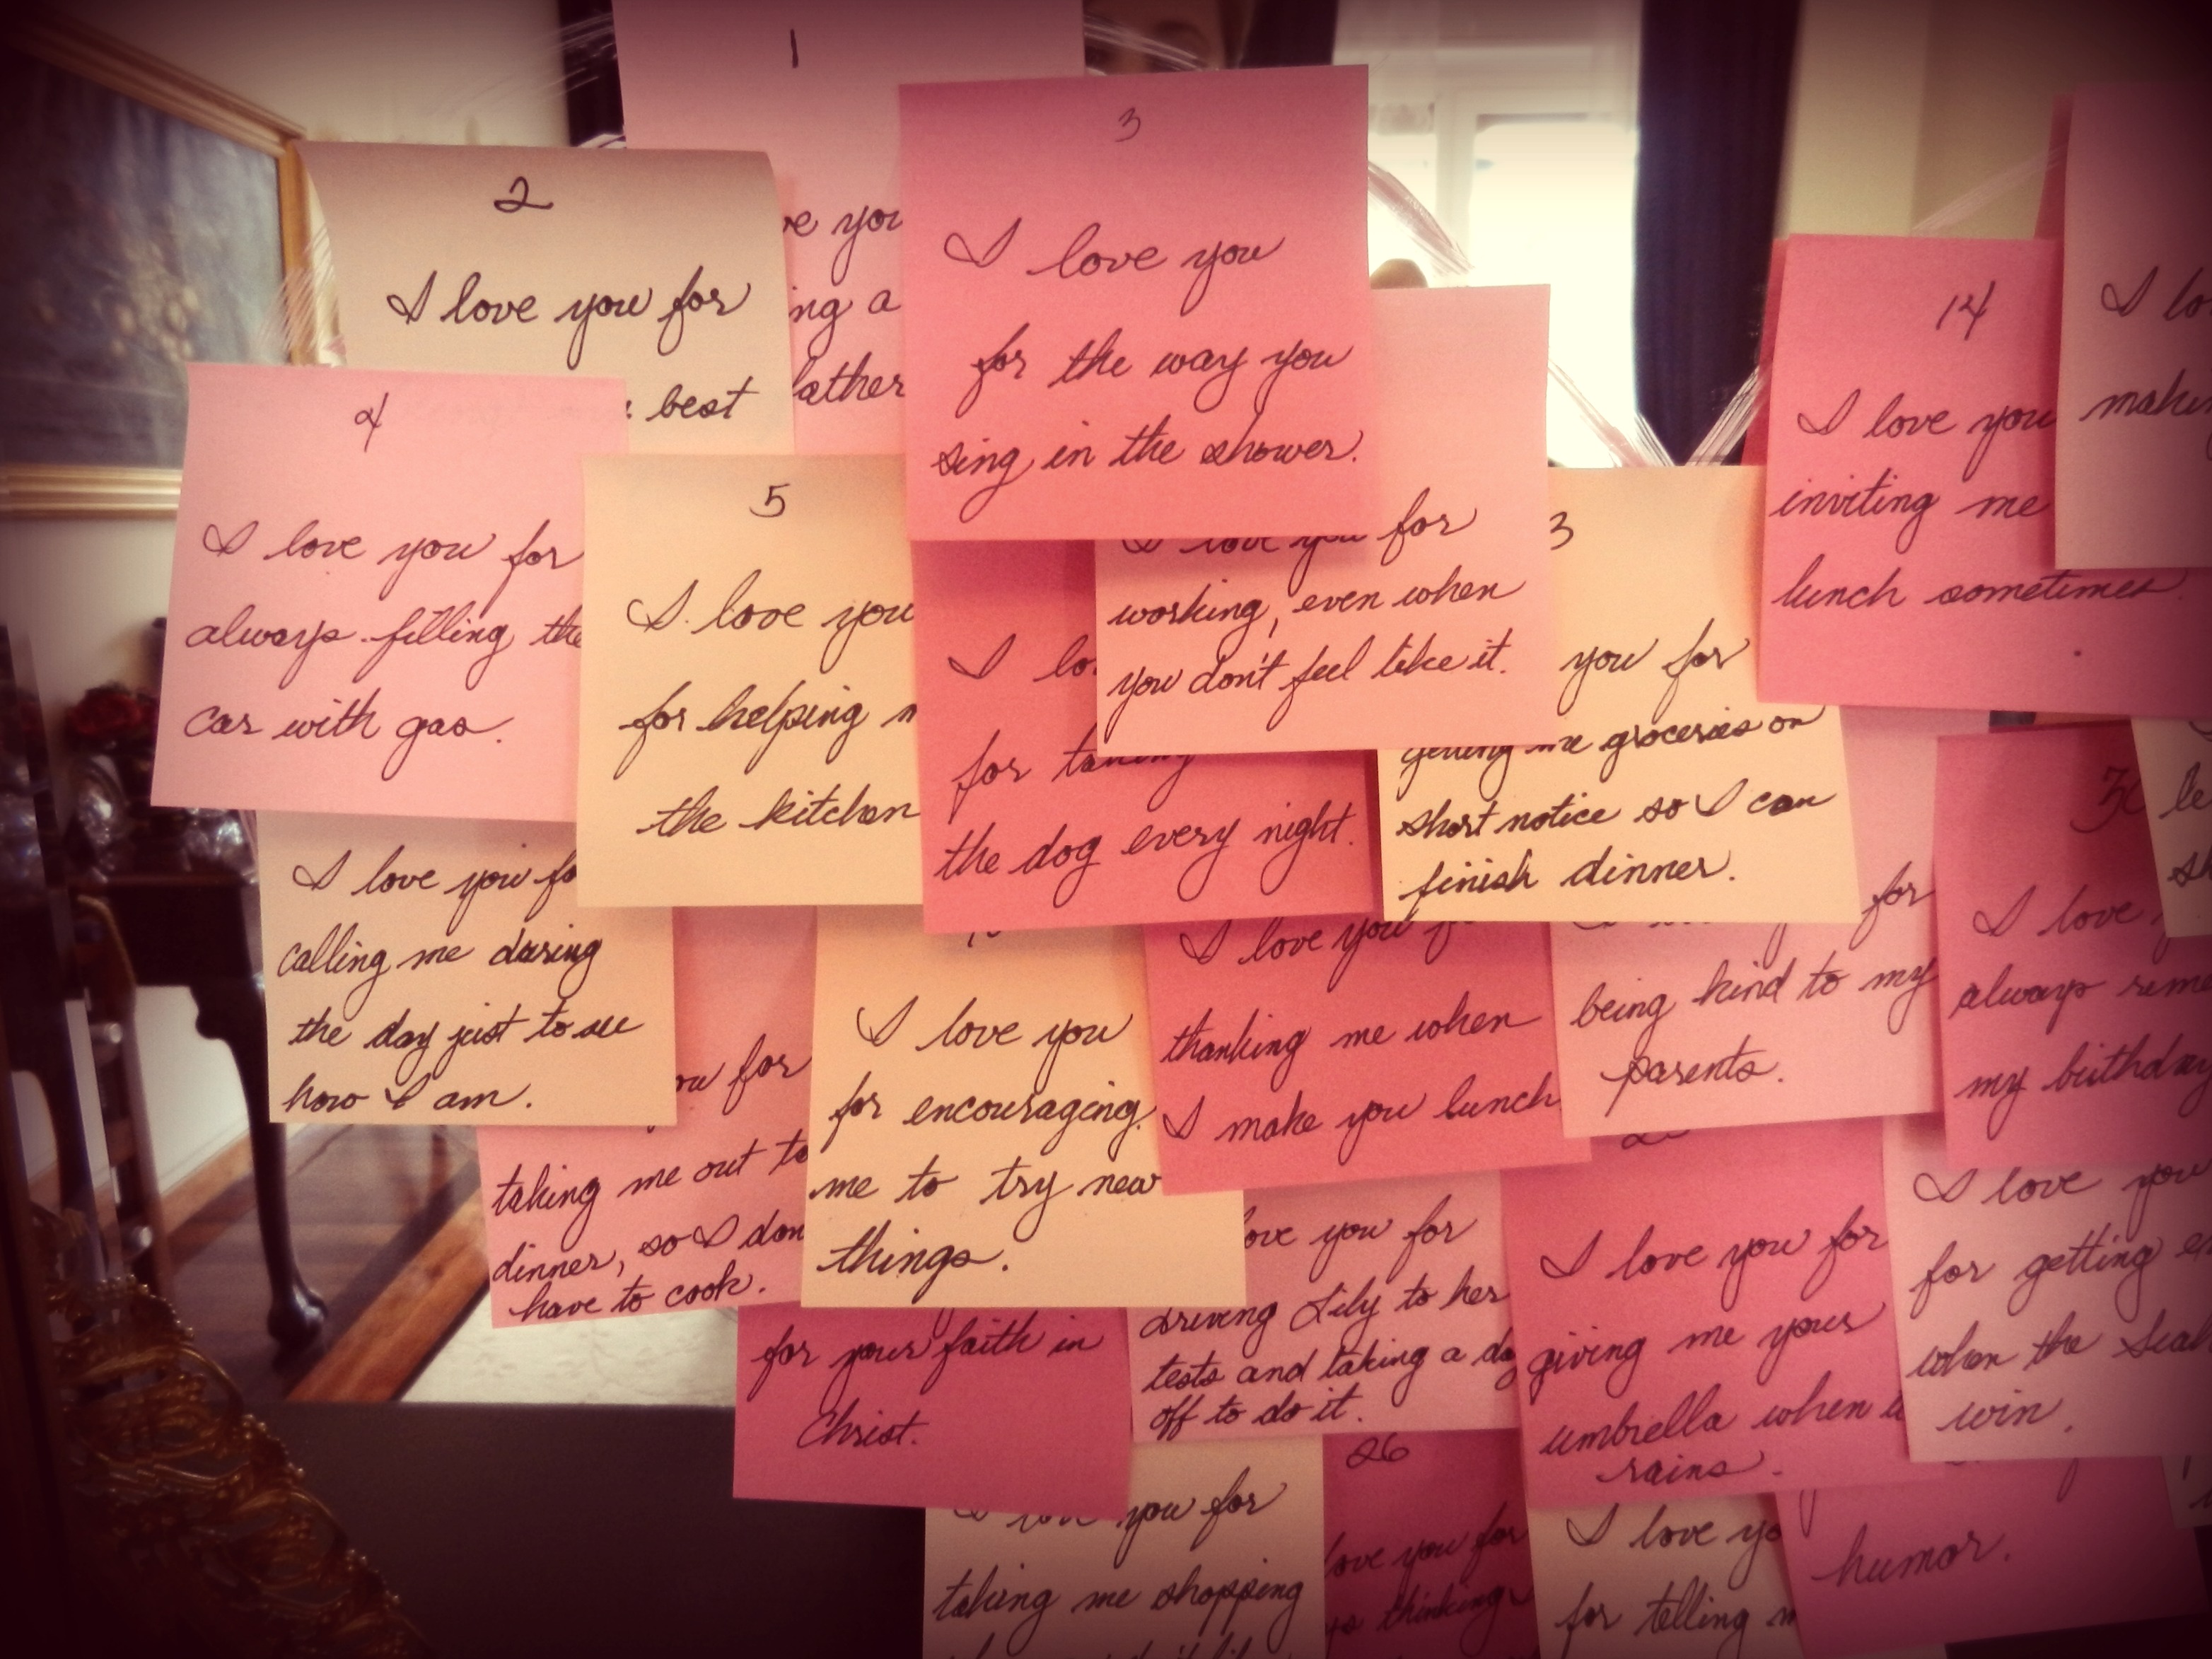 1
you
a
2
I love you for
best
3
I love you
for the way you
sing in the shower.
4
I love you for
always filling the
car with gas.
5
I love you
for helping
the kitchen
I love you for
working, even when
you don't feel like it.
I
for taking
the dog every night.
3
you for
getting me groceries on
short notice so I can
finish dinner.
14
I love you
inviting me
lunch sometimes.
I
I love you
calling me during
the day just to see
how I am.
for
taking me out to
dinner, so I don
have to cook.
I love you
for encouraging
me to try new
things.
I love you
thanking me when
I make you lunch
for
being kind to my
parents.
30
I love
always
my birthday
for your faith in
Christ.
love you for
driving Lily to her
tests and taking a
off to do it.
I love you for
giving me your
umbrella when
rains.
I love you
for getting
when the
win.
I love you for
taking me shopping
26
love you for
thinking
I love
for telling
humor.